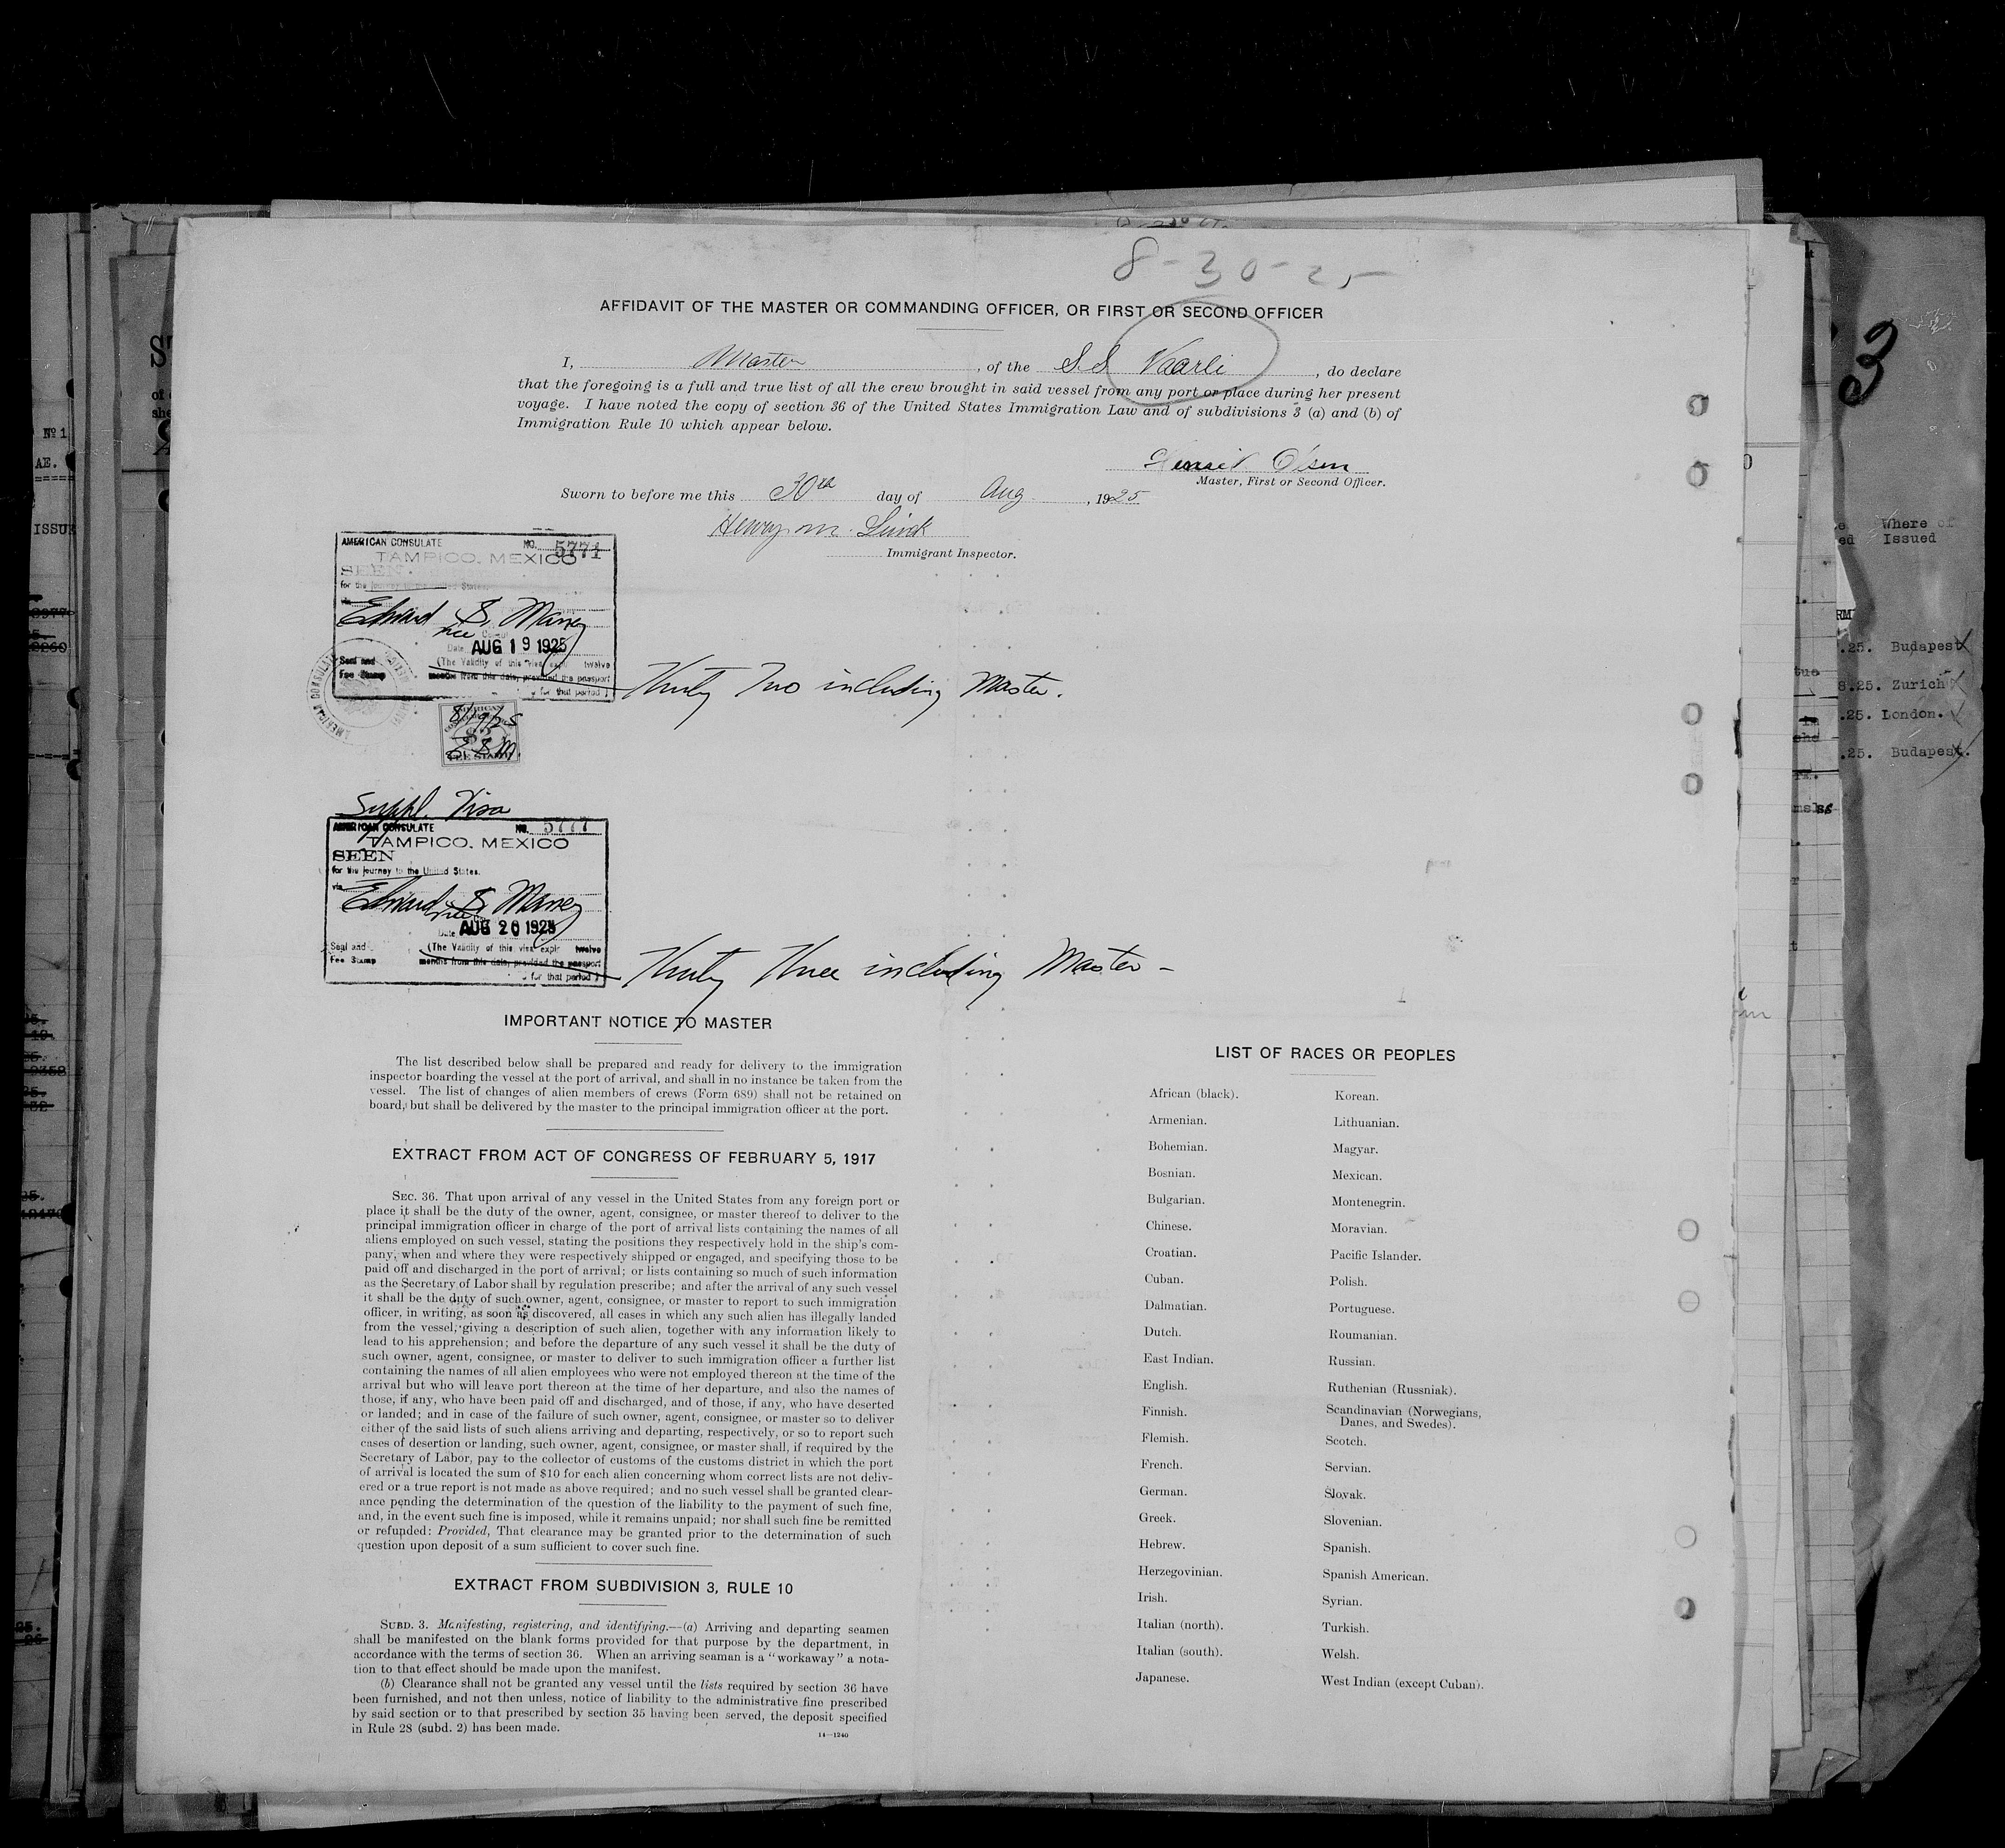 8-30-25
AFFIDAVIT OF THE MASTER OR COMMANDING OFFICER, OR FIRST OR SECOND OFFICER
I, Master, of the S.S. Vaarli, do declare
that the foregoing is a full and true list of all the crew brought in said vessel from any port or place during her present
voyage. I have noted the copy of section 36 of the United States Immigration Law and of subdivisions 3 (a) and (b) of
Immigration Rule 10 which appear below.
Olsen
Master, First or Second Officer.
Sworn to before me this 30th day of Aug., 1925
Henry M.
Immigrant Inspector.
AMERICAN CONSULATE NO. 5771
TAMPICO, MEXICO
SEEN
for the journey to the United States.
via
Edward S. Maney
Vice Consul
Date AUG 19 1925
Seal and (The Validity of this visa expires twelve
Fee Stamp months from this date, provided the passport
for that period)
Thirty Two including Master.
AMERICAN CONSULATE
AMERICAN
8/19/25
$2
E S M.
FEE STAMP
Suppl. Visa
AMERICAN CONSULATE NO. 5777
TAMPICO, MEXICO
SEEN
for the journey to the United States.
via
Edward S. Maney
Vice
Date AUG 20 1925
Seal and (The Validity of this visa expir twelve
Fee Stamp months from this date, provided the passport
for that period)
Thirty Three including Master -
IMPORTANT NOTICE TO MASTER
The list described below shall be prepared and ready for delivery to the immigration
inspector boarding the vessel at the port of arrival, and shall in no instance be taken from the
vessel. The list of changes of alien members of crews (Form 689) shall not be retained on
board, but shall be delivered by the master to the principal immigration officer at the port.
EXTRACT FROM ACT OF CONGRESS OF FEBRUARY 5, 1917
SEC. 36. That upon arrival of any vessel in the United States from any foreign port or
place it shall be the duty of the owner, agent, consignee, or master thereof to deliver to the
principal immigration officer in charge of the port of arrival lists containing the names of all
aliens employed on such vessel, stating the positions they respectively hold in the ship's com-
pany, when and where they were respectively shipped or engaged, and specifying those to be
paid off and discharged in the port of arrival; or lists containing so much of such information
as the Secretary of Labor shall by regulation prescribe; and after the arrival of any such vessel
it shall be the duty of such owner, agent, consignee, or master to report to such immigration
officer, in writing, as soon as discovered, all cases in which any such alien has illegally landed
from the vessel, giving a description of such alien, together with any information likely to
lead to his apprehension; and before the departure of any such vessel it shall be the duty of
such owner, agent, consignee, or master to deliver to such immigration officer a further list
containing the names of all alien employees who were not employed thereon at the time of the
arrival but who will leave port thereon at the time of her departure, and also the names of
those, if any, who have been paid off and discharged, and of those, if any, who have deserted
or landed; and in case of the failure of such owner, agent, consignee, or master so to deliver
either of the said lists of such aliens arriving and departing, respectively, or so to report such
cases of desertion or landing, such owner, agent, consignee, or master shall, if required by the
Secretary of Labor, pay to the collector of customs of the customs district in which the port
of arrival is located the sum of $10 for each alien concerning whom correct lists are not deliv-
ered or a true report is not made as above required; and no such vessel shall be granted clear-
ance pending the determination of the question of the liability to the payment of such fine,
and, in the event such fine is imposed, while it remains unpaid; nor shall such fine be remitted
or refunded: Provided, That clearance may be granted prior to the determination of such
question upon deposit of a sum sufficient to cover such fine.
EXTRACT FROM SUBDIVISION 3, RULE 10
SUBD. 3. Manifesting, registering, and identifying.—(a) Arriving and departing seamen
shall be manifested on the blank forms provided for that purpose by the department, in
accordance with the terms of section 36. When an arriving seaman is a "workaway" a nota-
tion to that effect should be made upon the manifest.
(b) Clearance shall not be granted any vessel until the lists required by section 36 have
been furnished, and not then unless, notice of liability to the administrative fine prescribed
by said section or to that prescribed by section 35 having been served, the deposit specified
in Rule 28 (subd. 2) has been made.
14—1240
LIST OF RACES OR PEOPLES
African (black).
Armenian.
Bohemian.
Bosnian.
Bulgarian.
Chinese.
Croatian.
Cuban.
Dalmatian.
Dutch.
East Indian.
English.
Finnish.
Flemish.
French.
German.
Greek.
Hebrew.
Herzegovinian.
Irish.
Italian (north).
Italian (south).
Japanese.
Korean.
Lithuanian.
Magyar.
Mexican.
Montenegrin.
Moravian.
Pacific Islander.
Polish.
Portuguese.
Roumanian.
Russian.
Ruthenian (Russniak).
Scandinavian (Norwegians,
Danes, and Swedes).
Scotch.
Servian.
Slovak.
Slovenian.
Spanish.
Spanish American.
Syrian.
Turkish.
Welsh.
West Indian (except Cuban).
3
Where of
Issued
.25. Budapest
8.25. Zurich
.25. London.
.25. Budapest.
Nº 1
AE.
ISSUE